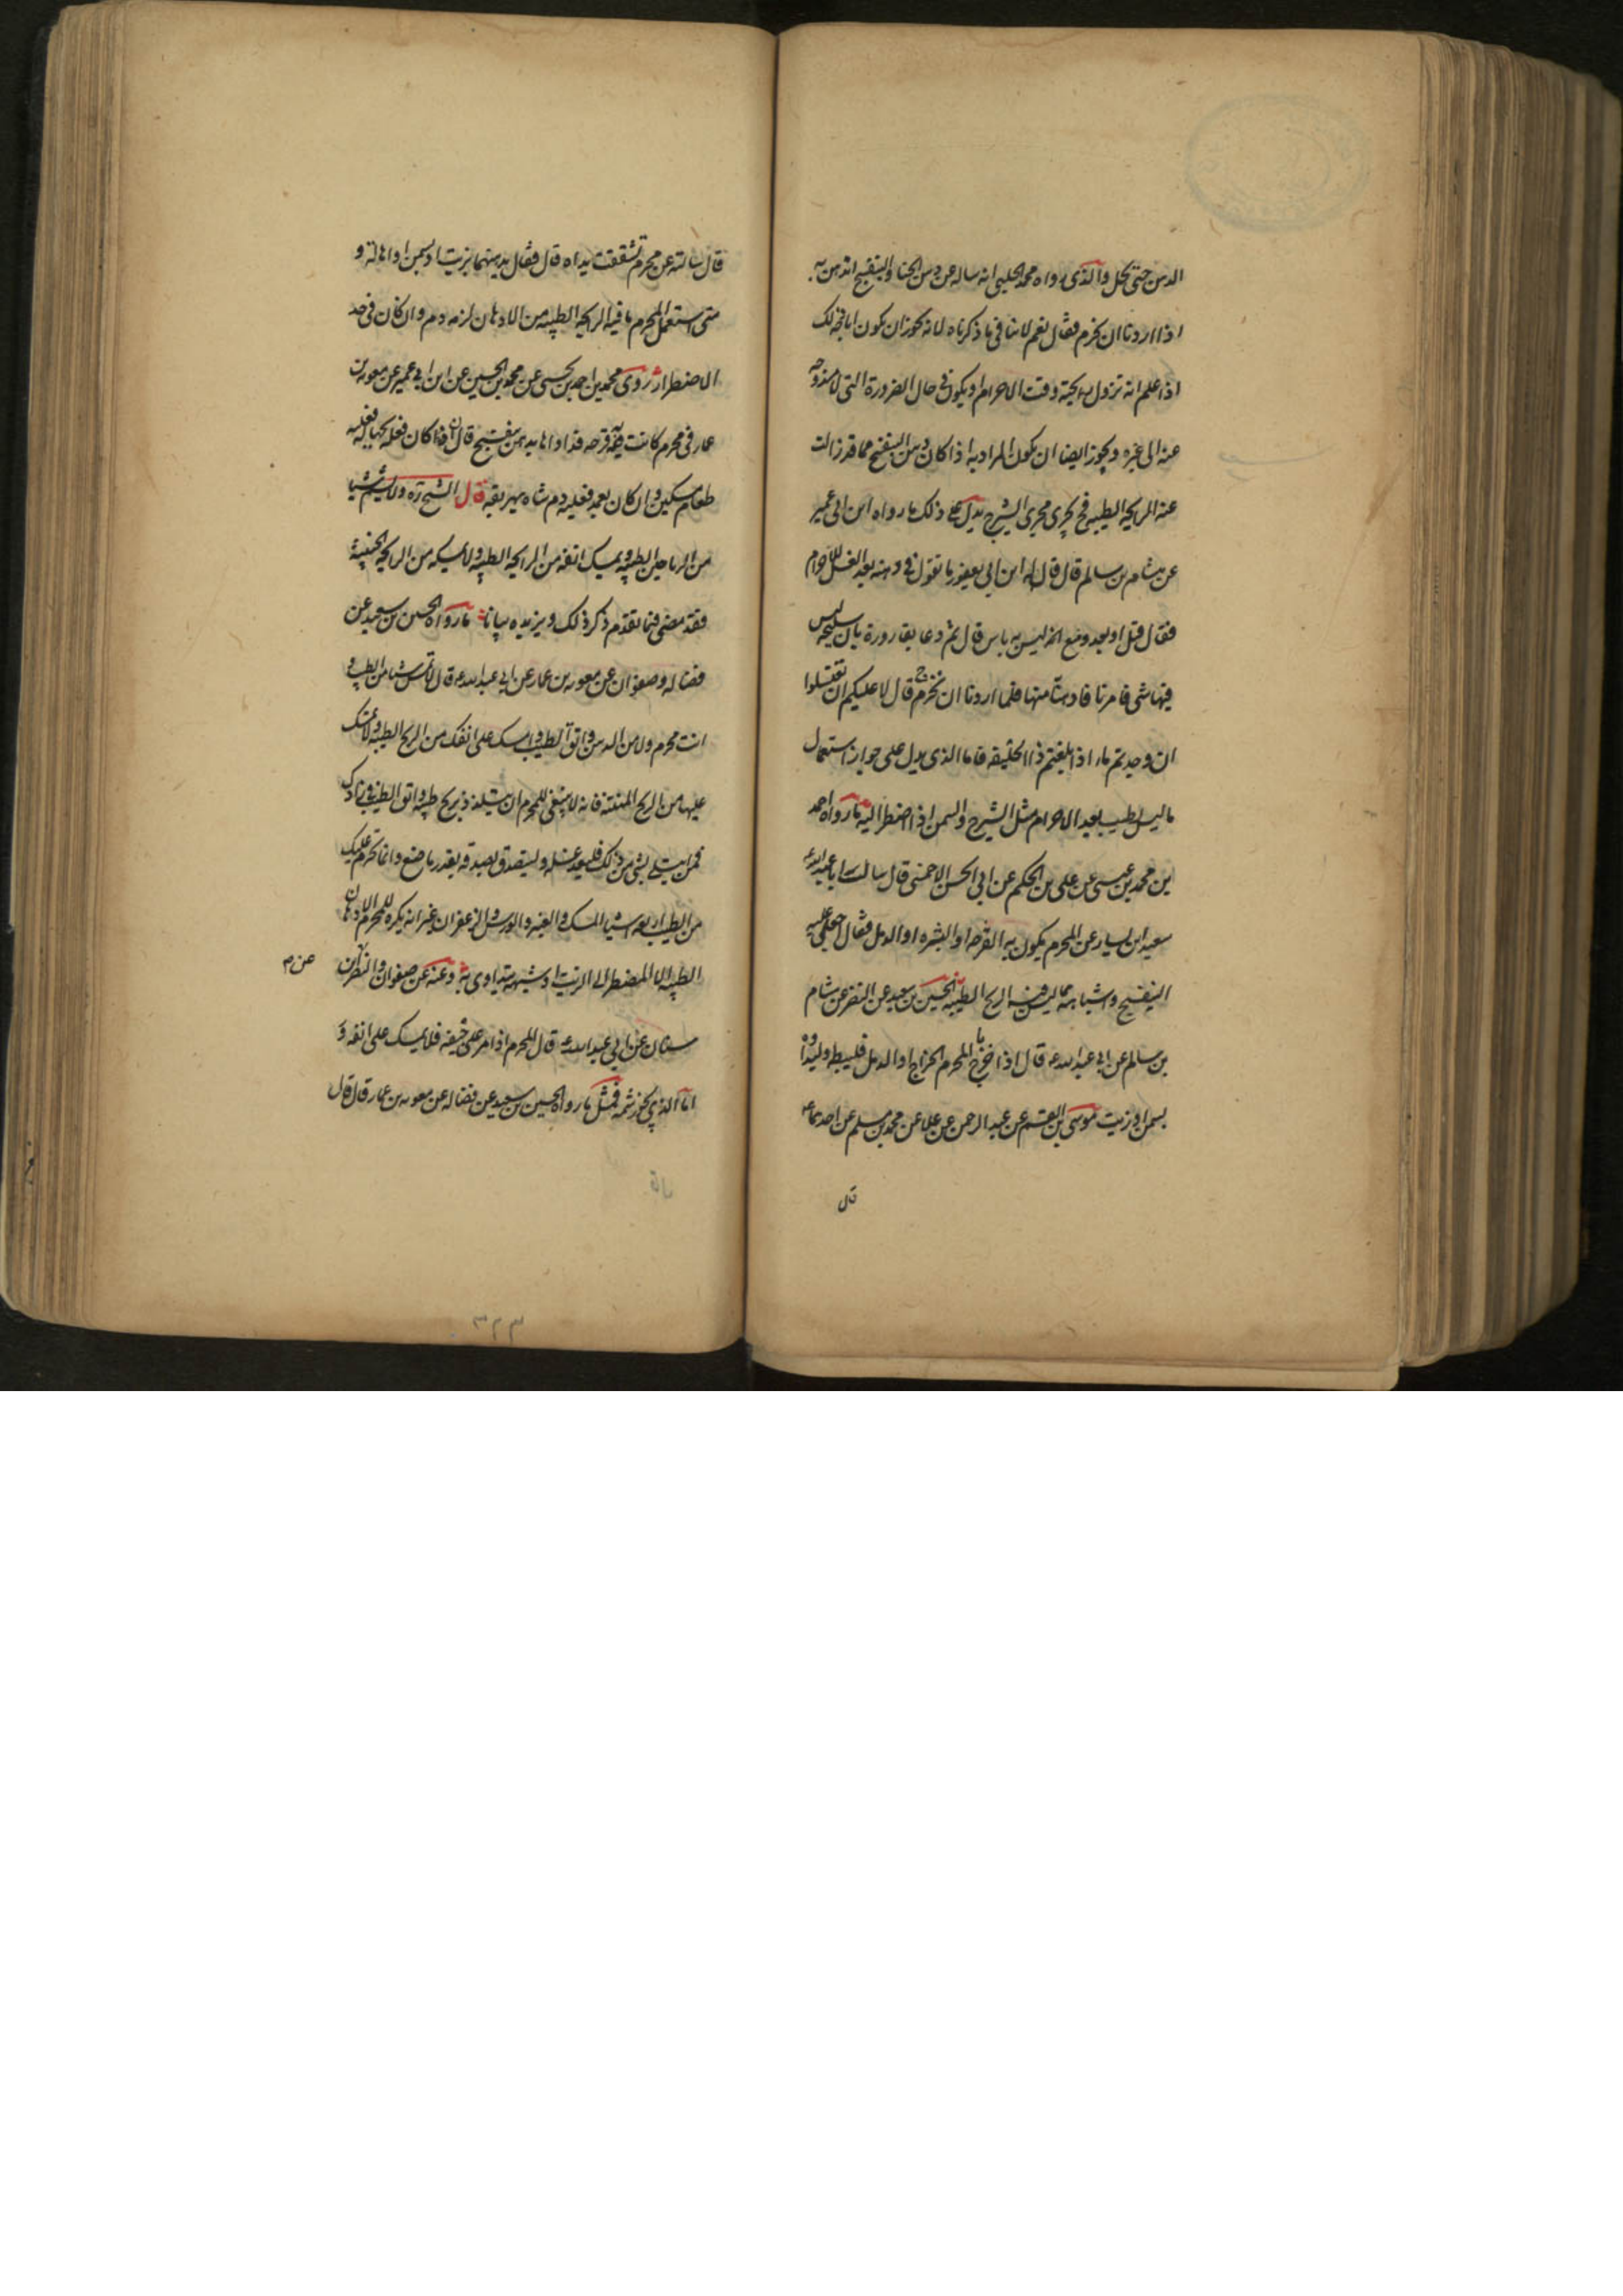 الدهن حتى تحل والذى رواه محمد الحلبى انه ساله عن دهن الحنا والبنفسج اندهن به
اذا اردنا ان نحرم فقال نعم لا ينافى ما ذكرناه لانه يجوز ان يكون اباحة ذلك
اذا علم انه تزول رايحته وقت الاحرام او يكون فى حال الضرورة التى لا مندوحة
عنه الى غيره ويجوز ايضا ان يكون المراد به اذا كان دهن البنفسج مما قد زالت
عنه الرايحة الطيبة فح يجرى مجرى الشيرج يدل على ذلك ما رواه ابن ابى عمير
عن هشام بن سالم قال قال له ابن ابى يعفور ما تقول فى دهنه بعد الغسل للاحرام
فقال قبل او بعد ومع الخ ليس به باس قال ثم دعا بقارورة بان سليخة ليس
فيها شى فامرنا فادهنا منها فلما اردنا ان نخرج قال لا عليكم ان تغتسلوا
ان وجدتم ماء اذا بلغتم ذا الحليفه فاما الذى يدل على جواز استعمال
ما ليس بطيب بعد الاحرام مثل الشيرج والسمن اذا اضطر اليه ما رواه احمد
بن محمد بن عيسى عن على بن الحكم عن ابى الحسن الاحمسى قال سالت ابا عبد الله ع
سعيد ابن يسار عن المحرم يكون به القرحه او البثره او الدمل فقال اجعل عليه
البنفسج واشباهه مما ليس فيه الريح الطيبه الحسين بن سعيد عن النضر عن هشام
بن سالم عن ابى عبد الله ع قال اذا خرج بالمحرم الخراج او الدمل فليبطه وليداوه
بسمن او زيت موسى بن القسم عن عبد الرحمن عن علا عن محمد بن مسلم عن احدهما ع
قال
قال سالته عن محرم تشققت يداه قال فقال يدهنهما بزيت او بسمن او اهالة و
متى استعمل المحرم ما فيه الرايحة الطيبه من الادهان لزمه دم وان كان فى حد
الاضطرار روى محمد بن احمد بن يحيى عن محمد بن الحسين عن ابن ابى عمير عن معويه بن
عمار فى محرم كانت به قرحه فداواها بدهن بنفسج قال ان كان فعله بجهالة فعليه
طعام مسكين وان كان تعمد فعليه دم شاه يهريقه قال الشيخ ره ولا يشم شيا
من الرياحين الطيبه ويمسك انفه من الرايحة الطيبه ولا يمسكه من الرايحة الخبيثة
فقد مضى فيما تقدم ذكر ذلك ويزيده بيانا ما رواه الحسين بن سعيد عن
فضاله وصفوان عن معويه بن عمار عن ابى عبد الله ع قال لا تمس شيا من الطيب و
انت محرم ولا من الدهن واتق الطيب وامسك على انفك من الريح الطيبه ولا تمسك
عليها من الريح المنتنة فانه لا ينبغى للمحرم ان يتلذذ بريح طيبه واتق الطيب فى زادك
فمن ابتلى بشى من ذلك فليعد غسله وليتصدق بصدقه بقدر ما صنع وانما تحرم عليك
من الطيب اربعه اشيا المسك والعنبر والورس والزعفران غير انه يكره للمحرم الادهان
الطيبه الا المضطر الى الزيت او شبهه يتداوى به وعنه عن صفوان والنضر عن ابن
عن م
سنان عن ابى عبد الله ع قال المحرم اذا مر على جيفه فلا يمسك على انفه و
اما الذى يجوز شمه فمثل ما رواه الحسين بن سعيد عن فضاله عن معويه بن عمار قال قال
٣٢٣